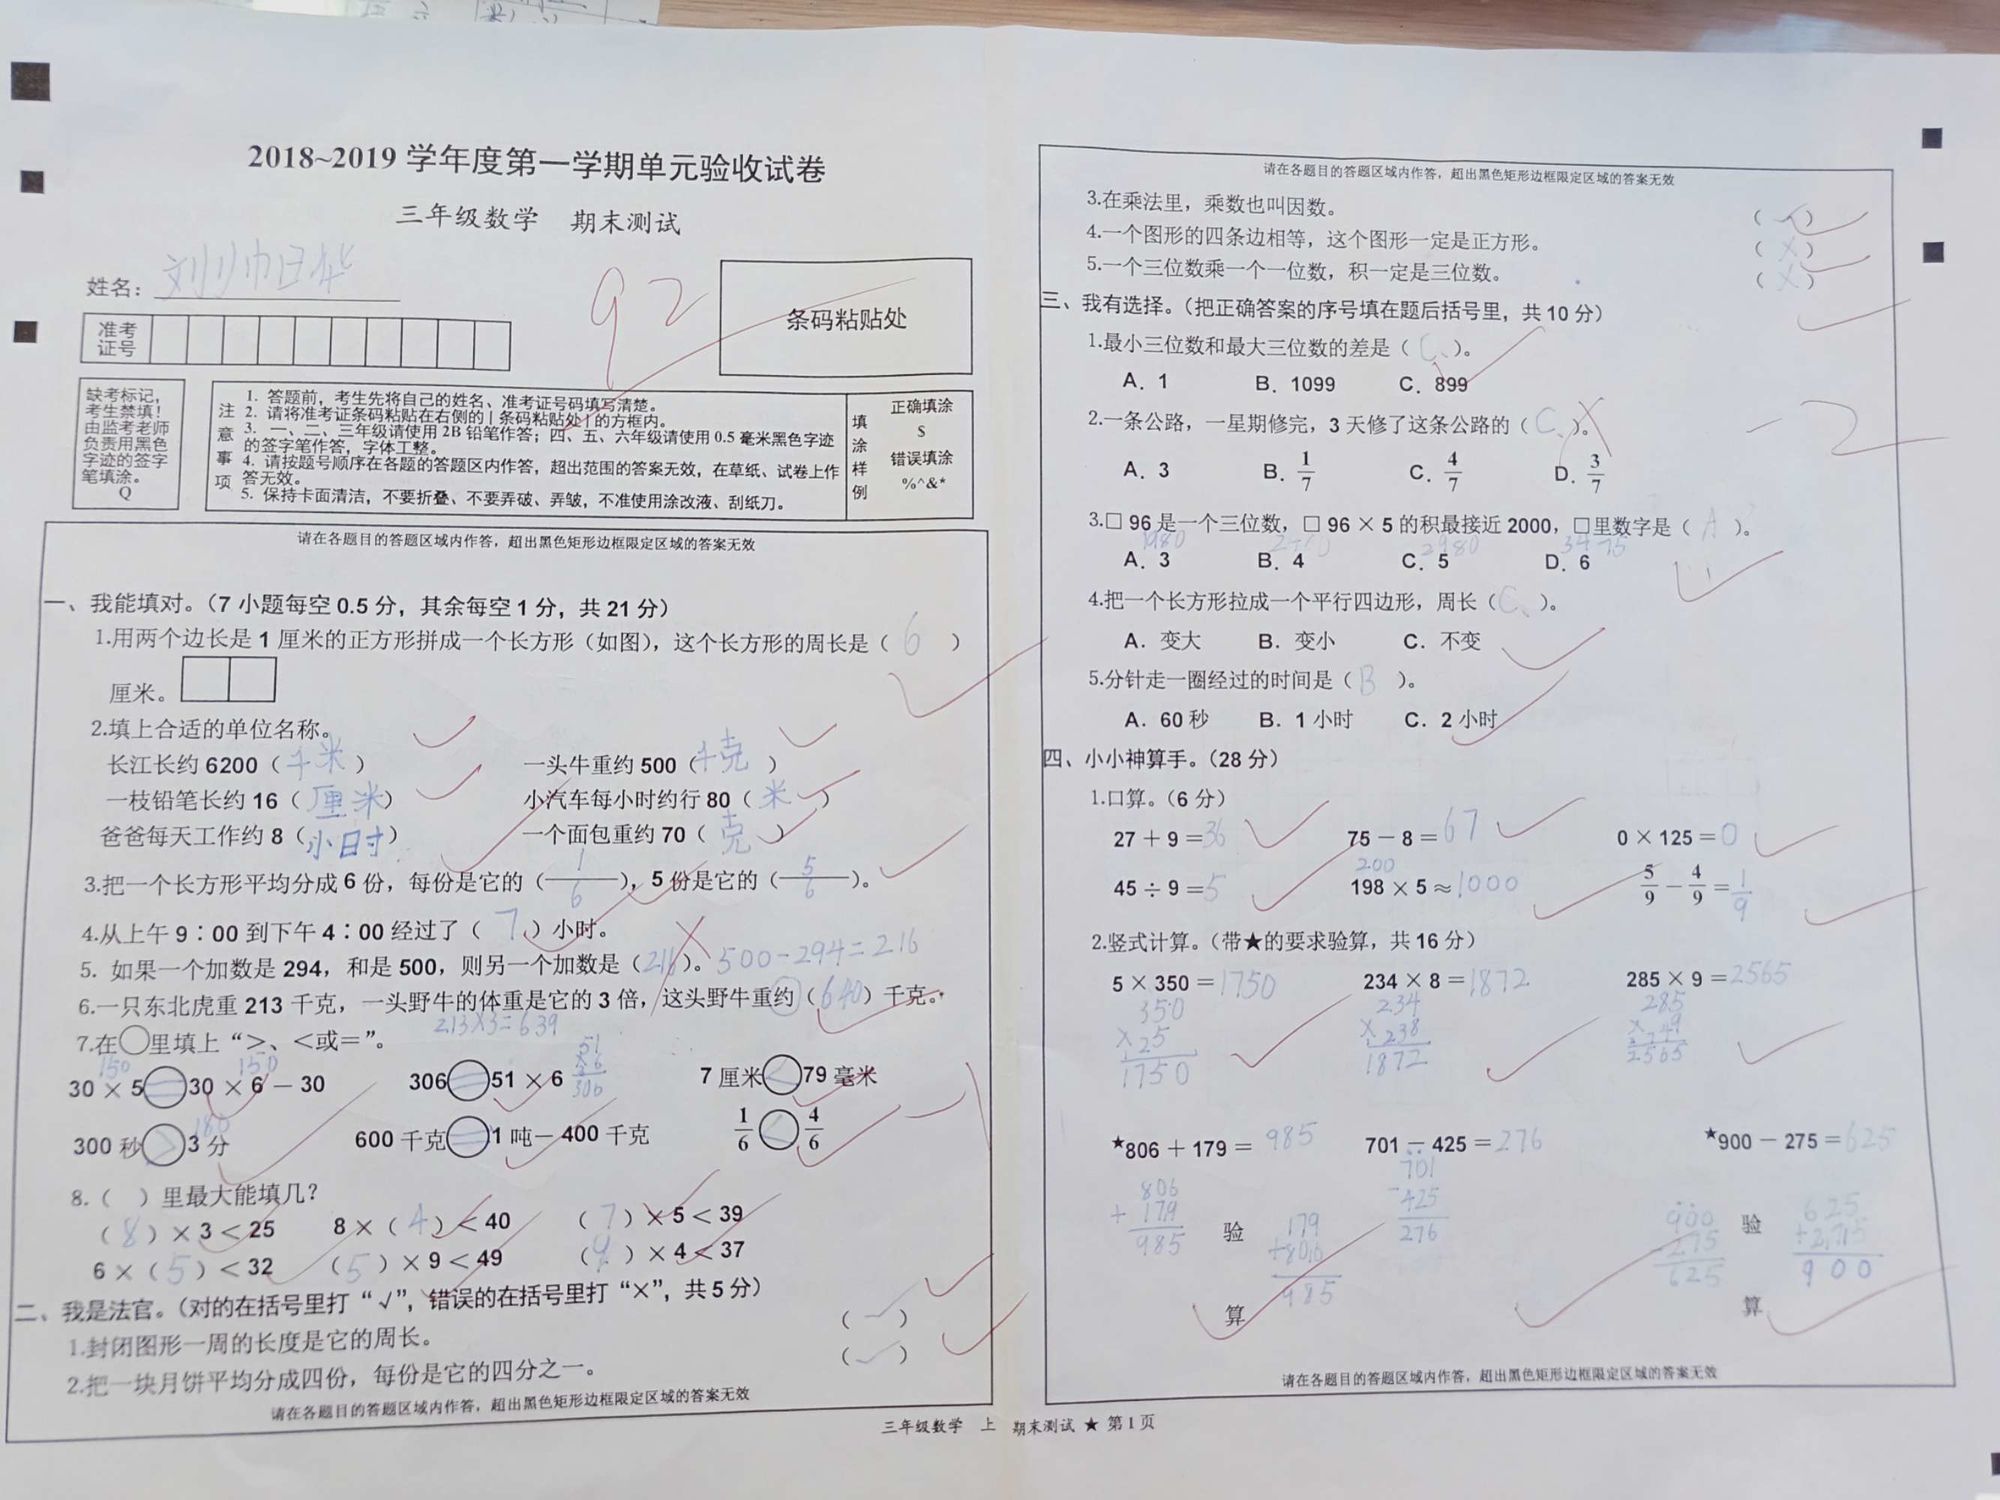 2018~2019 学年度第一学期单元验收试卷
三年级数学 期末测试
姓名：
92
条码粘贴处
准考证号
缺考标记，
考生禁填！
由监考老师
负责用黑色
字迹的签字
笔填涂。
Q
注意事项
1. 答题前，考生先将自己的姓名、准考证号码填写清楚。
2. 请将准考证条码粘贴在右侧的|条码粘贴处|的方框内。
3. 一、二、三年级请使用 2B 铅笔作答；四、五、六年级请使用 0.5 毫米黑色字迹
的签字笔作答，字体工整。
4. 请按题号顺序在各题的答题区内作答，超出范围的答案无效，在草纸、试卷上作
答无效。
5. 保持卡面清洁，不要折叠、不要弄破、弄皱，不准使用涂改液、刮纸刀。
填涂样例
正确填涂
S
错误填涂
%^&*
请在各题目的答题区域内作答，超出黑色矩形边框限定区域的答案无效
一、我能填对。（7 小题每空 0.5 分，其余每空 1 分，共 21 分）
1.用两个边长是 1 厘米的正方形拼成一个长方形（如图），这个长方形的周长是（ 6 ）
厘米。
2.填上合适的单位名称。
长江长约 6200（千米） 一头牛重约 500（千克）
一枝铅笔长约 16（厘米） 小汽车每小时约行 80（米）
爸爸每天工作约 8（小时） 一个面包重约 70（克）
3.把一个长方形平均分成 6 份，每份是它的（1/6），5 份是它的（5/6）。
4.从上午 9：00 到下午 4：00 经过了（ 7 ）小时。
5. 如果一个加数是 294，和是 500，则另一个加数是（216）。500-294=216
6.一只东北虎重 213 千克，一头野牛的体重是它的 3 倍，这头野牛重约（640）千克。
213×3=639
7.在○里填上“>、<或=”。
150 150
30 × 5 = 30 × 6 − 30 306 = 51 × 6 51 ×6 306 7 厘米 < 79 毫米
180
300 秒 > 3 分 600 千克 = 1 吨− 400 千克 1/6 < 4/6
8.（ ）里最大能填几？
（8）× 3 < 25 8 ×（4）< 40 （7）× 5 < 39
6 ×（5）< 32 （5）× 9 < 49 （9）× 4 < 37
二、我是法官。（对的在括号里打“√”，错误的在括号里打“×”，共 5 分）
1.封闭图形一周的长度是它的周长。 （√）
2.把一块月饼平均分成四份，每份是它的四分之一。 （√）
请在各题目的答题区域内作答，超出黑色矩形边框限定区域的答案无效
请在各题目的答题区域内作答，超出黑色矩形边框限定区域的答案无效
3.在乘法里，乘数也叫因数。 （√）
4.一个图形的四条边相等，这个图形一定是正方形。 （×）
5.一个三位数乘一个一位数，积一定是三位数。 （×）
三、我有选择。（把正确答案的序号填在题后括号里，共 10 分）
1.最小三位数和最大三位数的差是（C）。
A．1 B．1099 C．899
2.一条公路，一星期修完，3 天修了这条公路的（C）。
-2
A．3 B．1/7 C．4/7 D．3/7
3.□ 96 是一个三位数，□ 96 × 5 的积最接近 2000，□里数字是（A）。
1980 2980
A．3 B．4 C．5 D．6
4.把一个长方形拉成一个平行四边形，周长（C）。
A．变大 B．变小 C．不变
5.分针走一圈经过的时间是（B）。
A．60 秒 B．1 小时 C．2 小时
四、小小神算手。（28 分）
1.口算。（6 分）
27 + 9 =36 75 − 8 =67 0 × 125 =0
200
45 ÷ 9 =5 198 × 5 ≈1000 5/9 − 4/9 =1/9
2.竖式计算。（带★的要求验算，共 16 分）
5 × 350 =1750 234 × 8 =1872 285 × 9 =2565
350 234 285
1750 1872 2565
★806 + 179 = 985 701 − 425 =276 ★900 − 275 =625
806 701 900 625
+ 179 验 179 -425 275 验
985 +806 276 625 900
算 985 算
请在各题目的答题区域内作答，超出黑色矩形边框限定区域的答案无效
三年级数学 上 期末测试 ★ 第 1 页